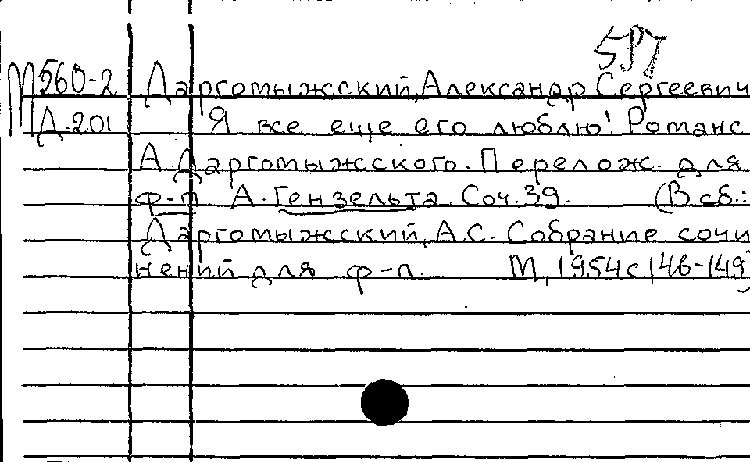 М560-2 Даргомыжский, Александр Сергеевич
Д.201 Я все еще его люблю! Романс
А.Даргомыжского. Перелож. для
ф-п А. Гензельта. Соч.39. (В сб.:
Даргомыжский, А.С. Собрание сочи
нений для ф-п. М, 1954 с 146-149)